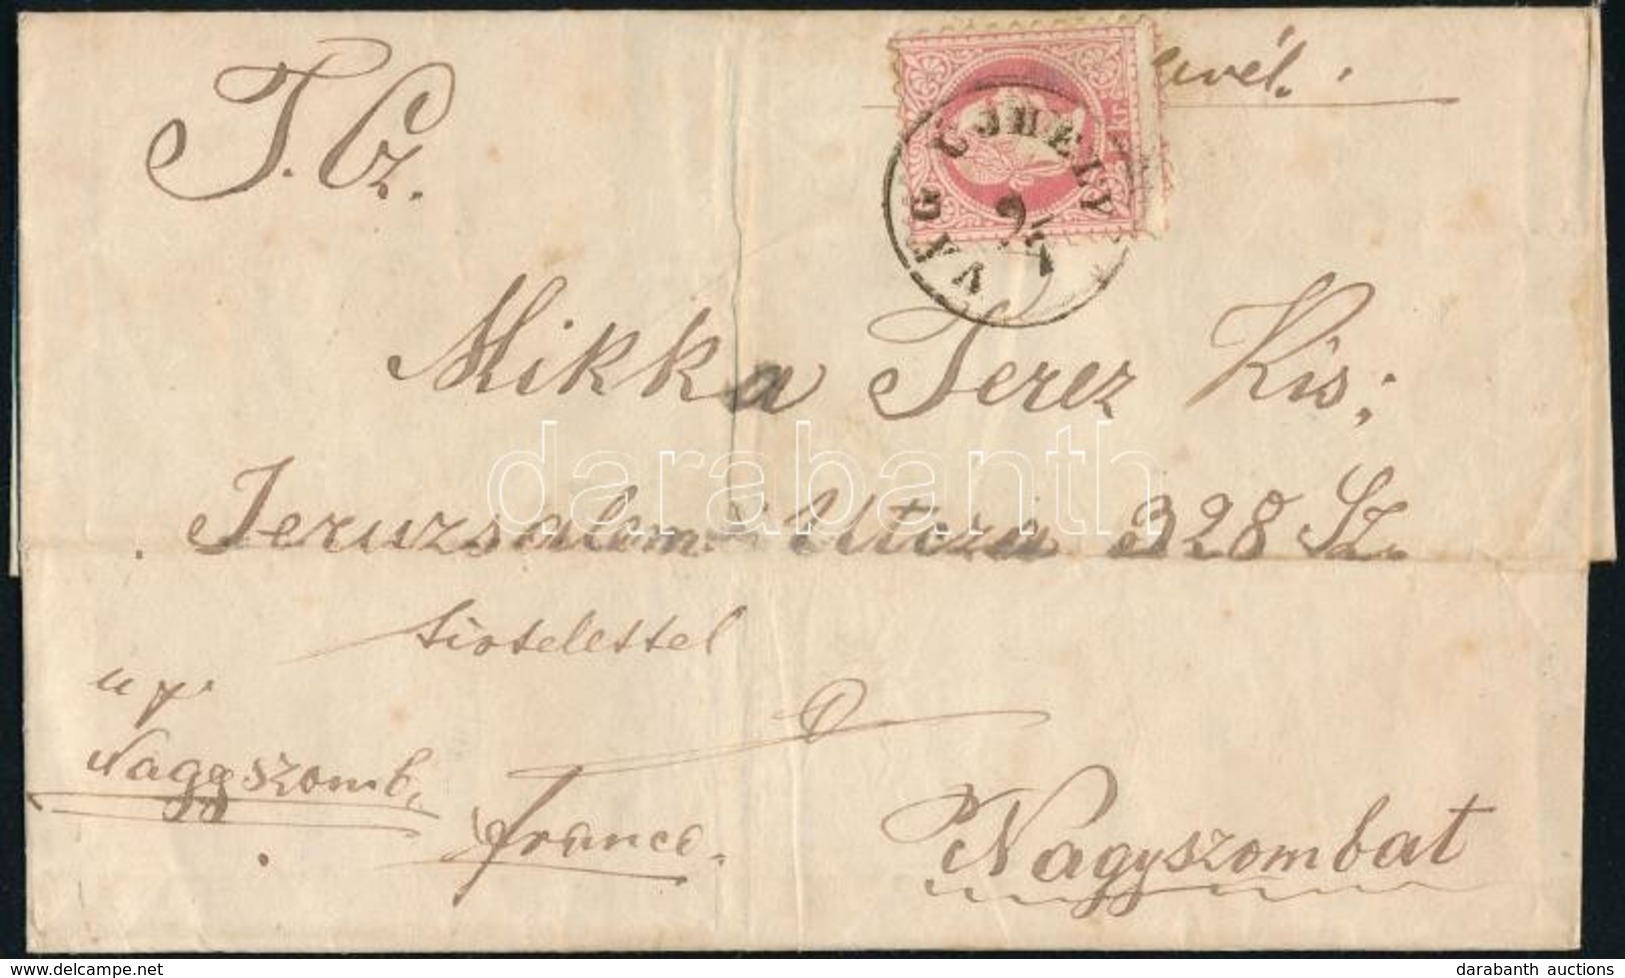 T. Cz.
avél.
VÁG UJHELY
9/7
Mikka Terez Kis:
Jeruzsalem Utcza 328 Sz.
tisztelettel
u. p.
Nagyszomb.
Franco.
Nagyszombat
darabanth
delcampe.net
darabanth auctions